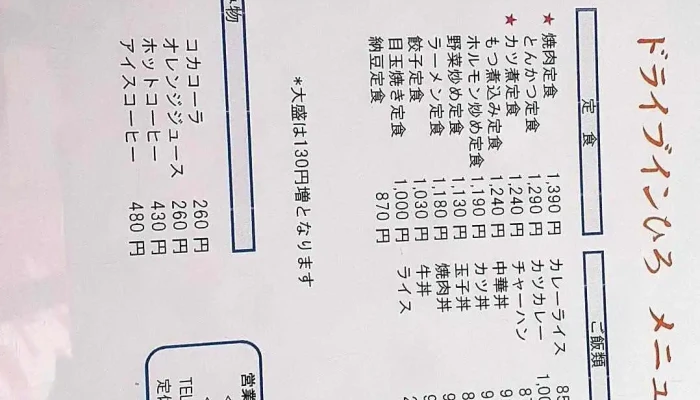 ドライブインひろ メニュ
定 食
★ 焼肉定食 1,390 円
とんかつ定食 1,290 円
★ カツ煮定食 1,240 円
もつ煮込み定食 1,240 円
ホルモン炒め定食 1,190 円
野菜炒め定食 1,130 円
ラーメン定食 1,180 円
餃子定食 1,030 円
目玉焼き定食 1,000 円
納豆定食 870 円
ご飯類
カレーライス
カツカレー
チャーハン
中華丼
カツ丼
玉子丼
焼肉丼
牛丼
ライス
*大盛は130円増となります
み物
コカコーラ 260 円
オレンジジュース 260 円
ホットコーヒー 430 円
アイスコーヒー 480 円
営業
TEL
定休